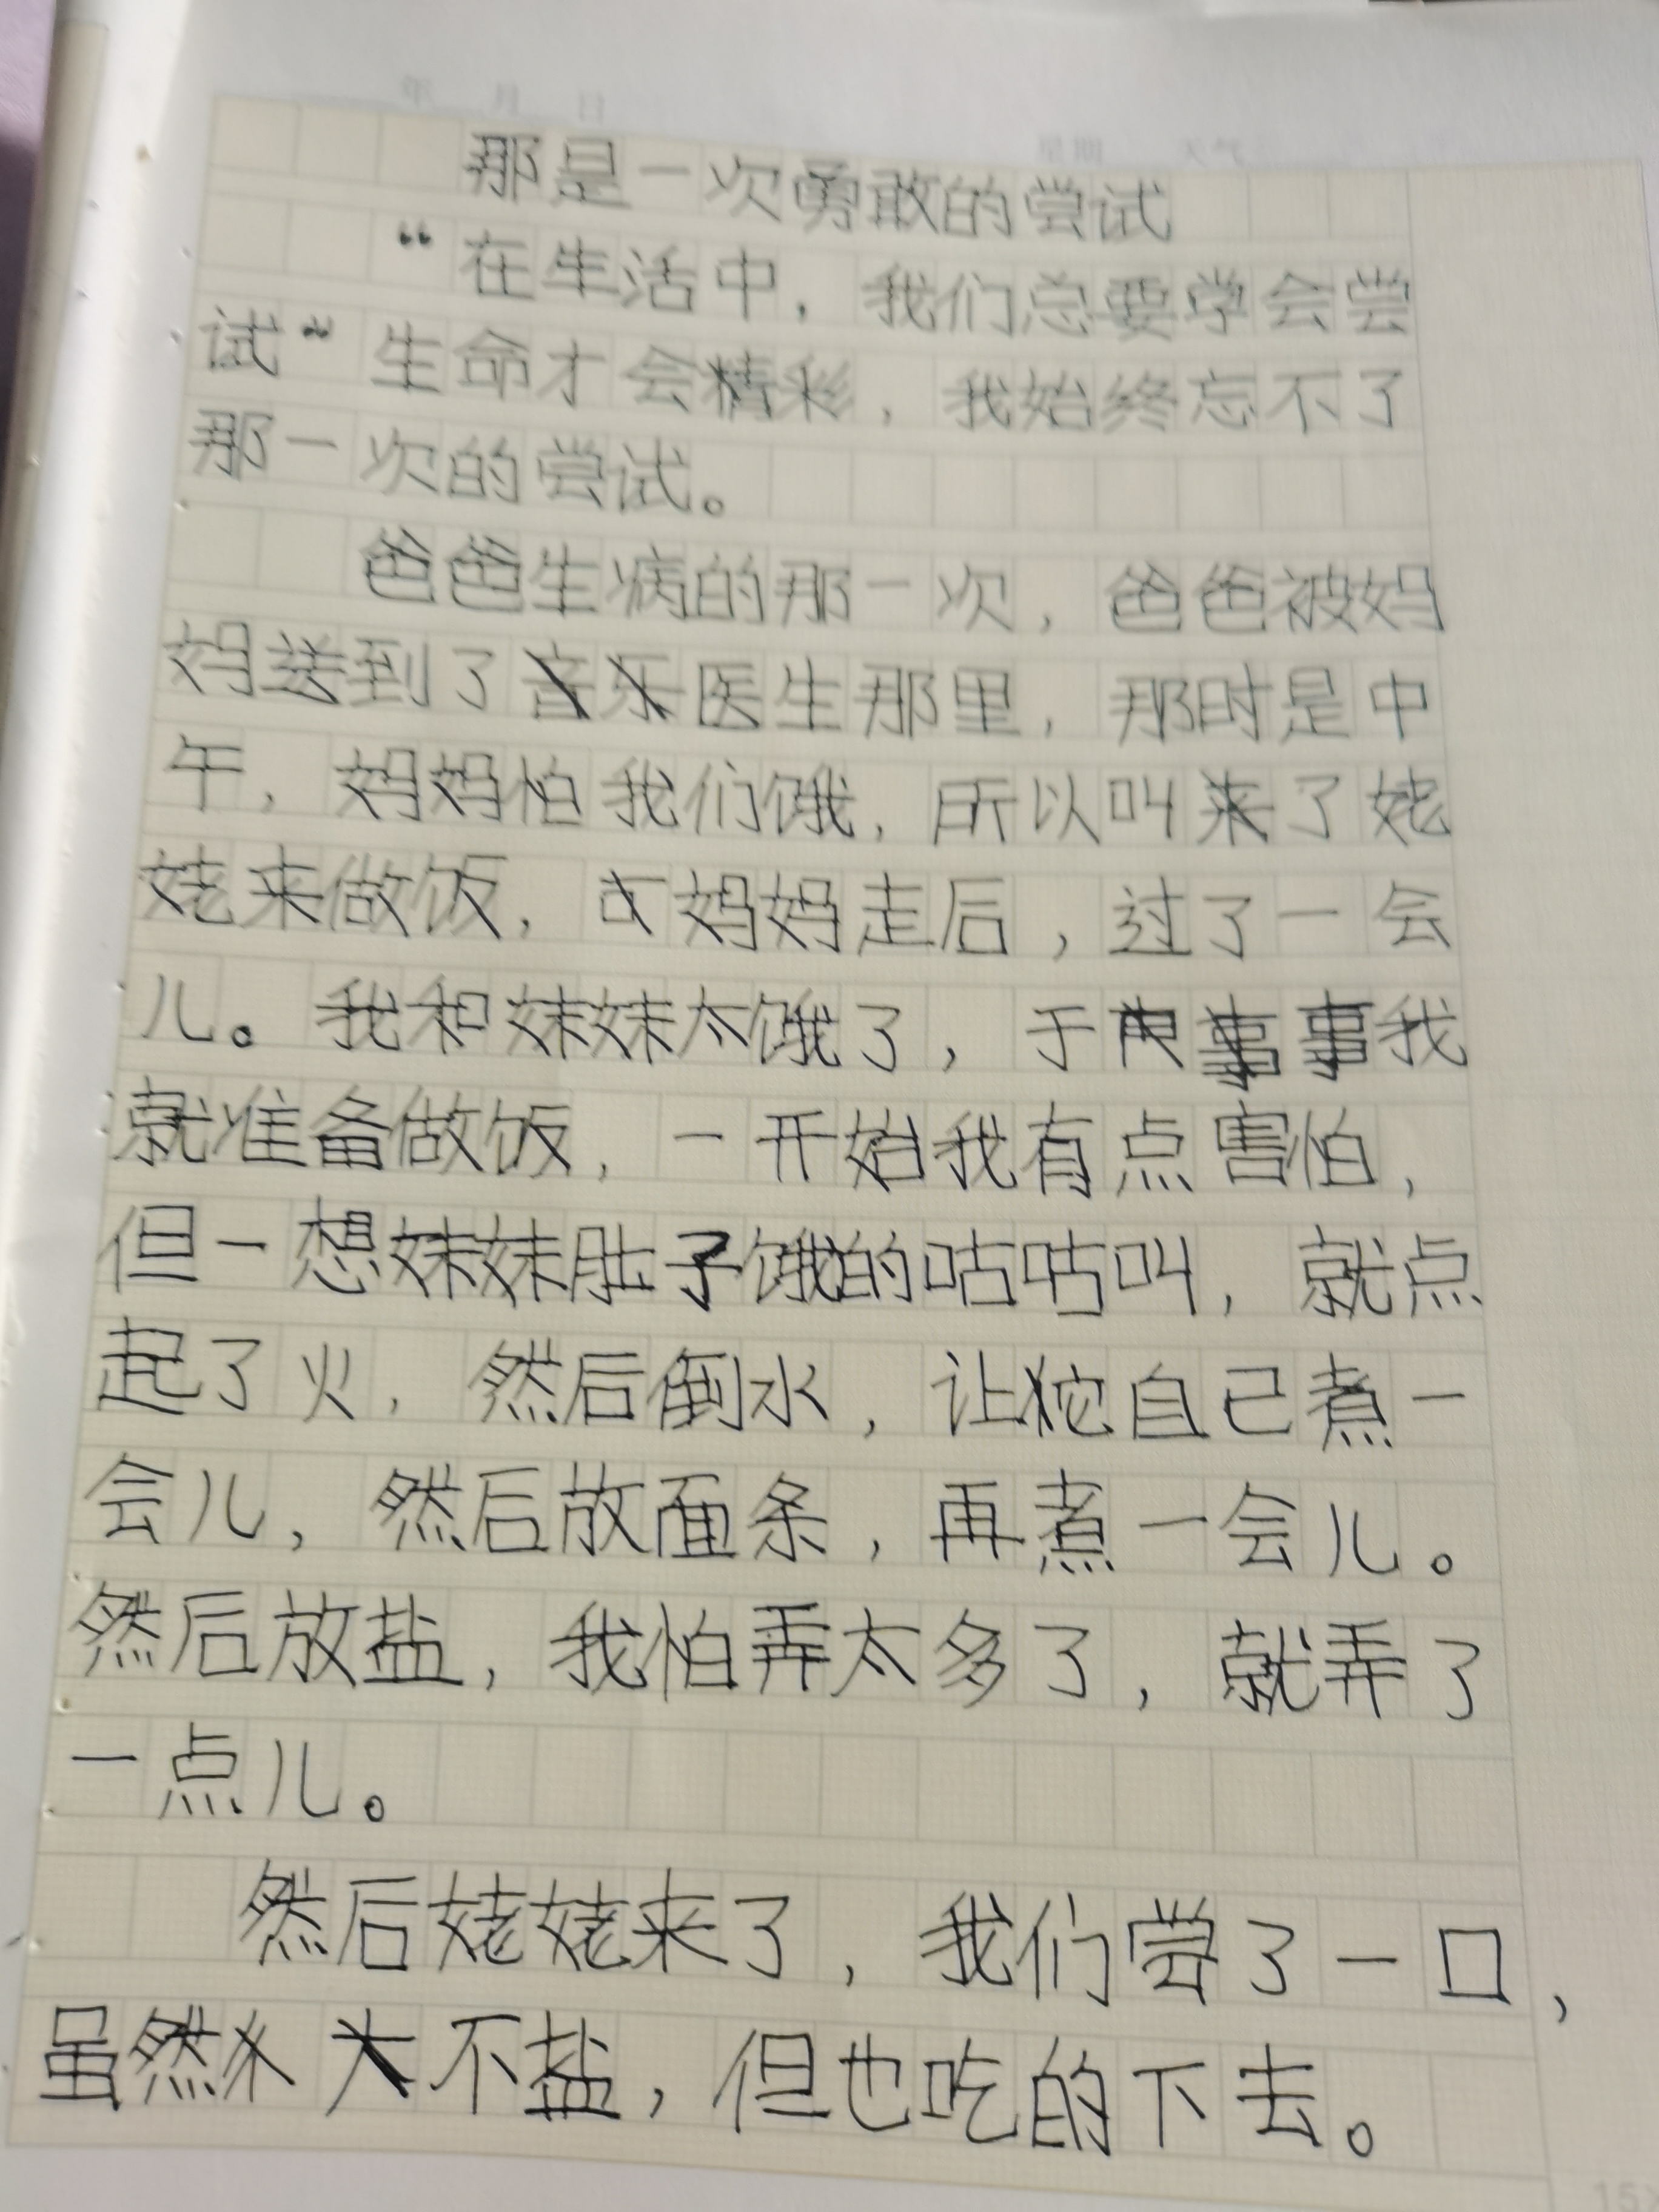 年 月 日
星期 天气
那是一次勇敢的尝试
“在生活中，我们总要学会尝
试”生命才会精彩，我始终忘不了
那一次的尝试。
爸爸生病的那一次，爸爸被妈
妈送到了医生那里，那时是中
午，妈妈怕我们饿，所以叫来了姥
姥来做饭，可妈妈走后，过了一会
儿。我和妹妹太饿了，于我
就准备做饭，一开始我有点害怕，
但一想妹妹肚子饿的咕咕叫，就点
起了火，然后倒水，让自己煮一
会儿，然后放面条，再煮一会儿。
然后放盐，我怕弄太多了，就弄了
一点儿。
然后姥姥来了，我们尝了一口，
虽然不盐，但也吃的下去。